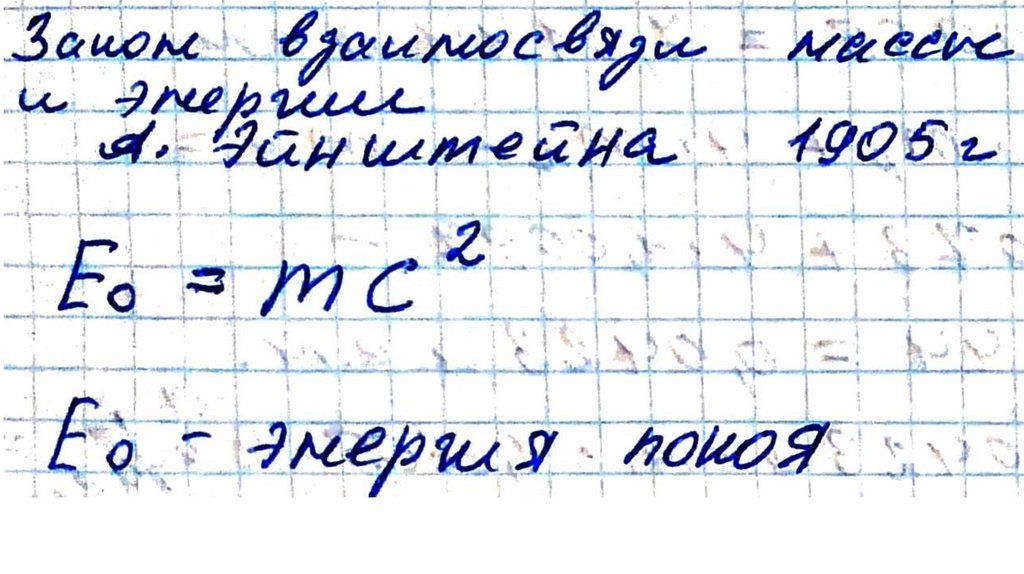 Закон взаимосвязи массы
и энергии
А. Эйнштейна 1905 г
E₀ = mc²
E₀ - энергия покоя